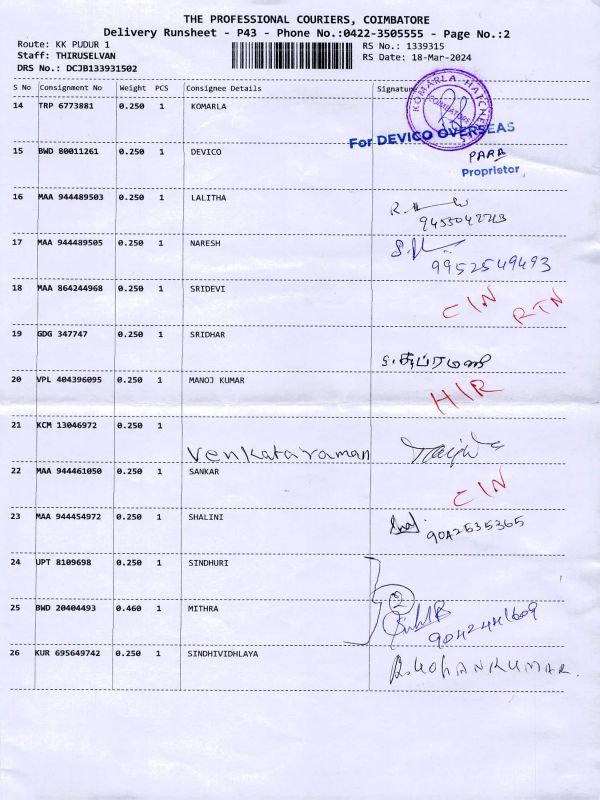 THE PROFESSIONAL COURIERS, COIMBATORE
Delivery Runsheet - P43 - Phone No.:0422-3505555 - Page No.:2
Route: KK PUDUR 1
Staff: THIRUSELVAN
DRS No.: DCJB133931502
RS No.: 1339315
RS Date: 18-Mar-2024
S No Consignment No Weight PCS Consignee Details Signature
14 TRP 6773881 0.250 1 KOMARLA
KOMARLA HATCHERIES
COIMBATORE
For DEVICO OVERSEAS
15 BWD 80011261 0.250 1 DEVICO
PARA
Proprietor
16 MAA 944489503 0.250 1 LALITHA
17 MAA 944489505 0.250 1 NARESH
9952549493
18 MAA 864244968 0.250 1 SRIDEVI CIN RTN
19 GDG 347747 0.250 1 SRIDHAR
20 VPL 404396095 0.250 1 MANOJ KUMAR HIR
21 KCM 13046972 0.250 1
Venkataraman
22 MAA 944461050 0.250 1 SANKAR CIN
23 MAA 944454972 0.250 1 SHALINI
9042535365
24 UPT 8109698 0.250 1 SINDHURI
2
25 BWD 20404493 0.460 1 MITHRA
9042441609
26 KUR 695649742 0.250 1 SINDHIVIDHLAYA
R. MOHANKUMAR.